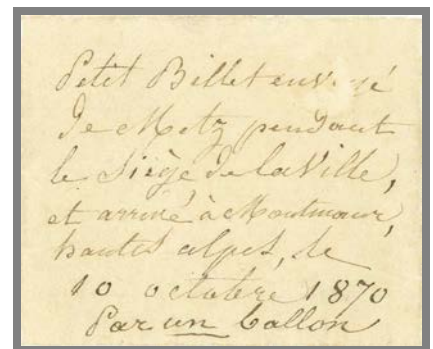 Petit Billet envoyé
de Metz pendant
le siège de la Ville,
et arrivé à Montmaur,
hautes alpes, le
10 octobre 1870
Par un ballon